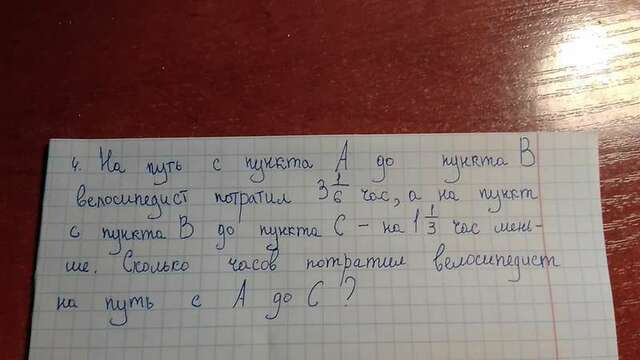 4. На путь с пункта А до пункта В
велосипедист потратил 3 1/6 час, а на пункт
с пункта В до пункта С - на 1 1/3 час мень-
ше. Сколько часов потратил велосипедист
на путь с А до С?